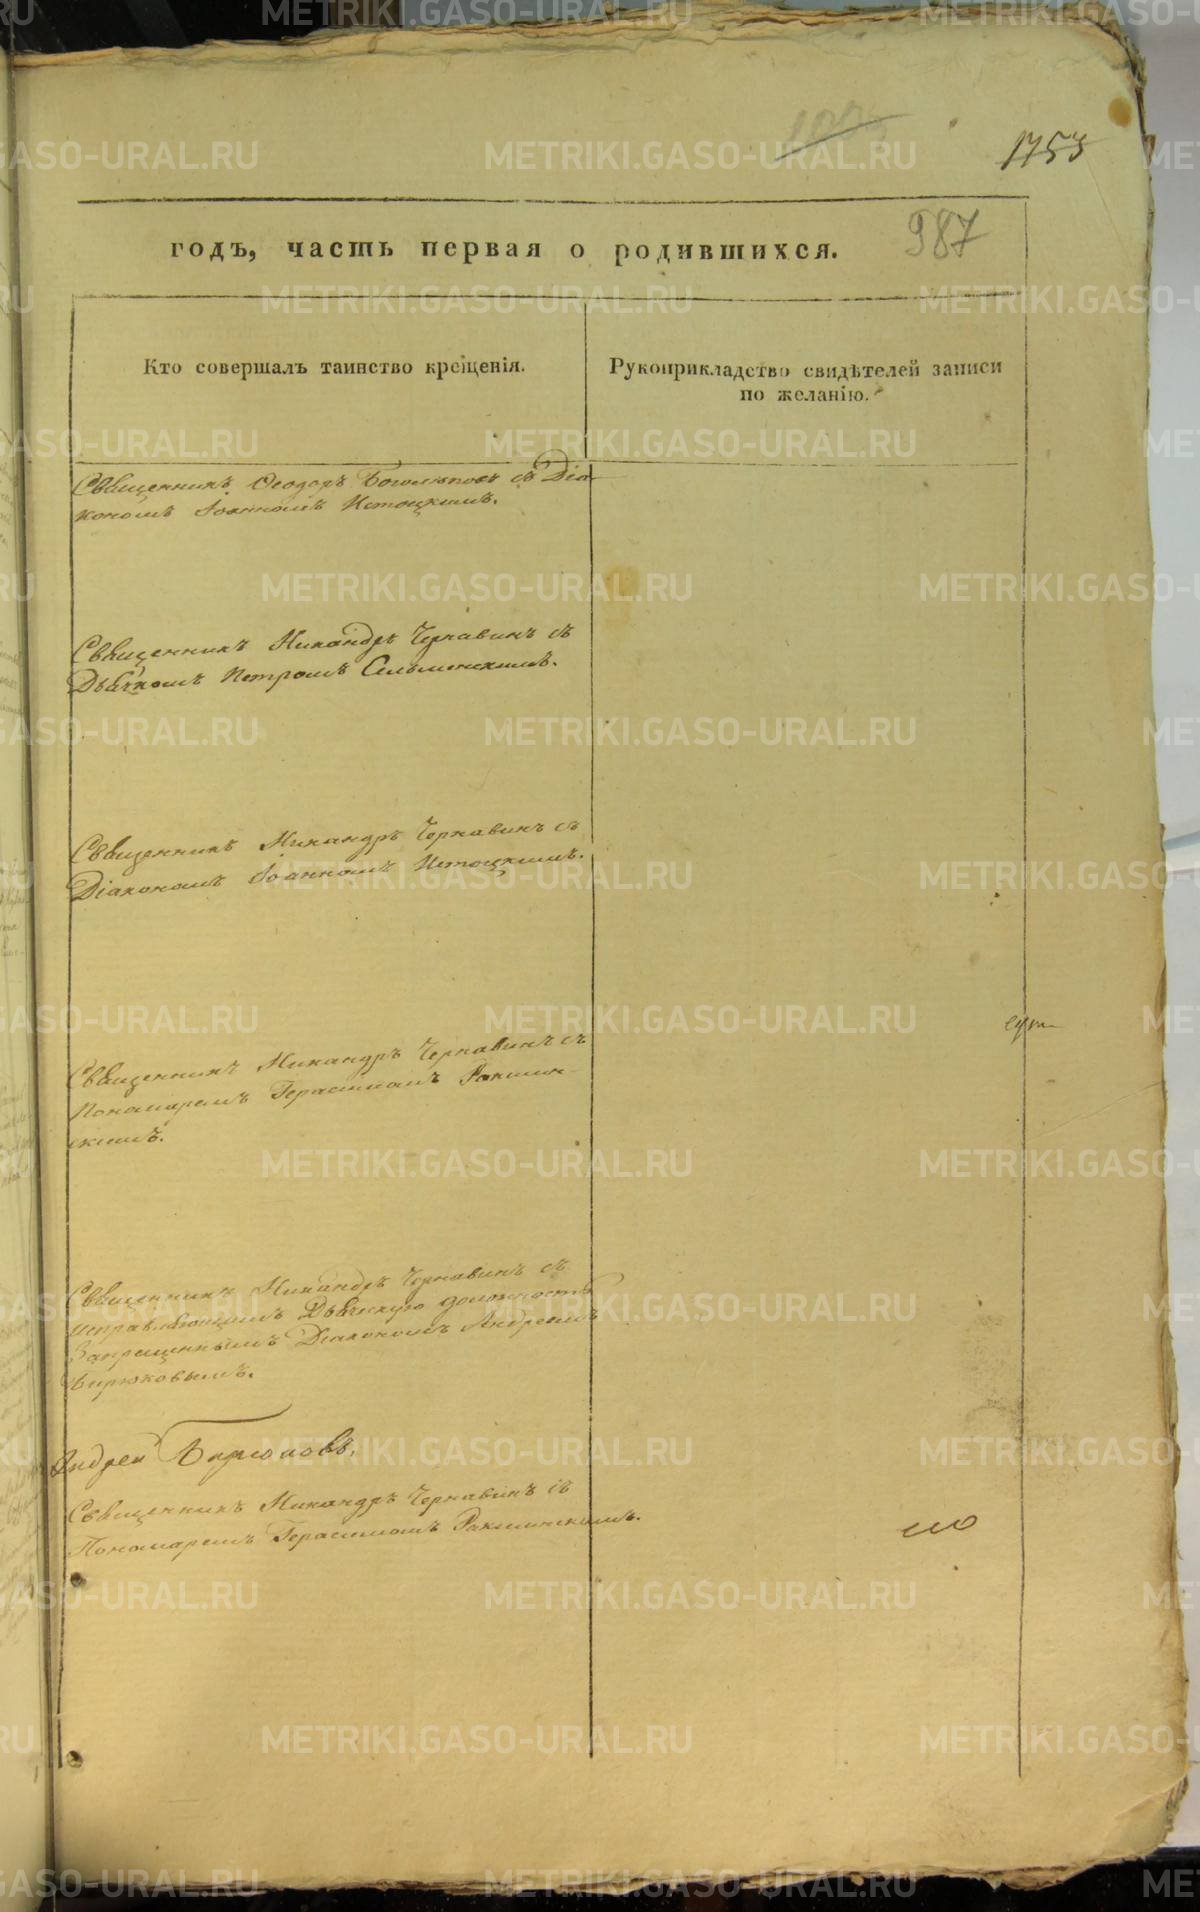 1753
987
годъ, часть первая о родившихся.
Кто совершалъ таинство крещенія.
Рукоприкладство свидѣтелей записи
по желанію.
Священникъ Ѳеодоръ Боголѣповъ съ Діа-
кономъ Іоанномъ Истоцкимъ.
Священникъ Никандръ Чернавинъ съ
Дьячкомъ Петромъ Сельменскимъ.
Священникъ Никандръ Чернавинъ съ
Діакономъ Іоанномъ Истоцкимъ.
Священникъ Никандръ Чернавинъ съ
Пономаремъ Герасимомъ Ракшин-
скимъ.
Священникъ Никандръ Чернавинъ съ
исправляющимъ Дьяческую должность
Запрещеннымъ Діакономъ Андреемъ
Бирюковымъ.
Андрей Бирюковъ.
Священникъ Никандръ Чернавинъ съ
Пономаремъ Герасимомъ Ракшинскимъ.
METRIKI.GASO-URAL.RU